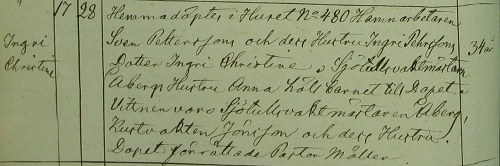 17 28 Hemmadöptes i Huset No 480 Hamnarbetaren
Ingri Christine
Sven Petterssons och dess Hustru Ingri Pehrsdons 34 år
Dotter Ingri Christine, Sjötullsvaktmästaren
Åbergs Hustru Anna höll barnet till Dopet
Vittnen voro Sjötullsvaktmästaren Åberg,
Kustvakten Jönsson och dess Hustru.
Dopet förrättade Pastor Möller.